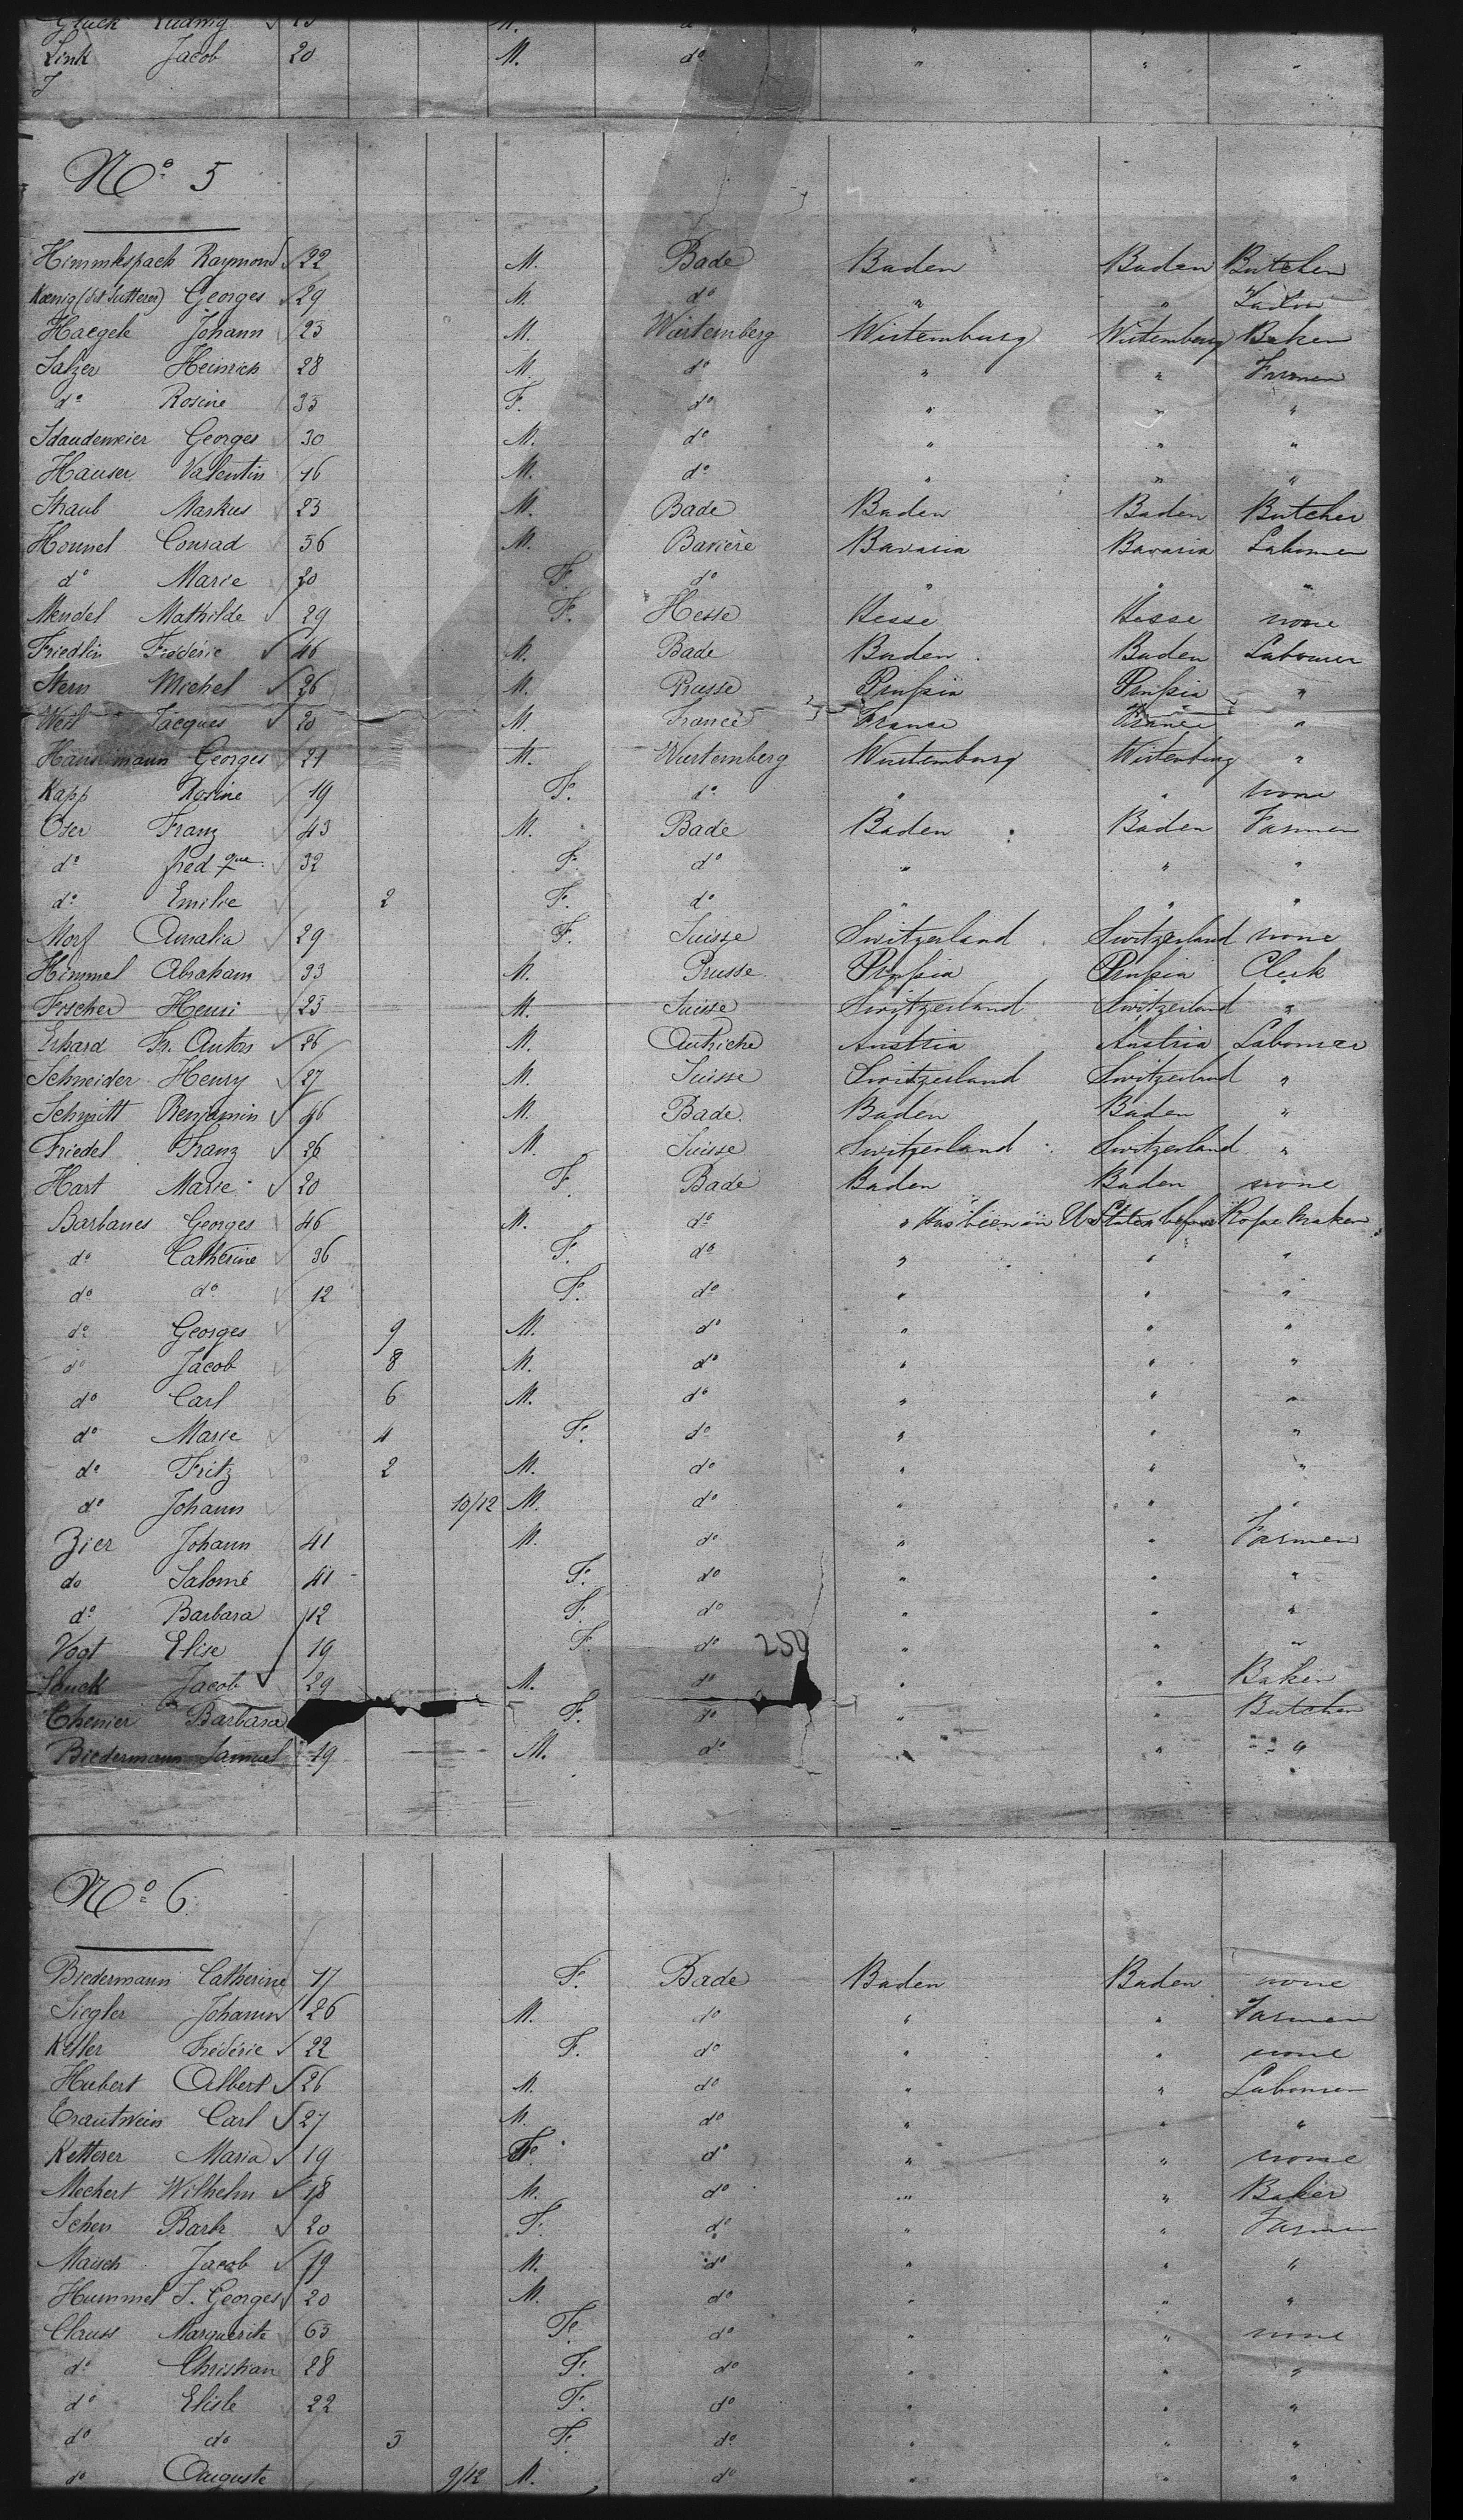 Gluck Ludwig
Link Jacob 20 M. do " " "
No 5
Himmelspach Raymond 22 M. Bade Baden Baden Butcher
Kœnig (dit Sutterer) Georges 29 M. do " "
Haegele Johann 23 M. Wurtemberg Wirtemburg Wirtemburg Baker
Salzer Heinrich 28 M. do " " Farmer
do Rosine 33 F. do " " "
Staudenmeier Georges 30 M. do " " "
Hauser Valentin 16 M. do " " "
Straub Markus 23 M. Bade Baden Baden Butcher
Hounel Conrad 56 M. Bavière Bavaria Bavaria Labourer
do Marie 20 F. do " " "
Mendel Mathilde 29 F. Hesse Hesse Hesse none
Friedlin Frédéric 46 M. Bade Baden Baden Labourer
Stern Michel 26 M. Prusse Prussia Prussia "
Weil Jacques 20 M. France France France "
Georges 21 M. Wurtemberg Wurtemburg Wirtemburg "
Kapp Rosine 19 F. do " " none
Oser Franz 43 M. Bade Baden Baden Farmer
do fredque 32 F. do " " "
do Emilie 2 F. do " " "
Morf Amalia 29 F. Suisse Switzerland Switzerland none
Himmel Abraham 33 M. Prusse Prussia Prussia Clerk
Fischer Henri 23 M. Suisse Switzerland Switzerland "
Erhard Fr. Anton 26 M. Autriche Austria Austria Labourer
Schneider Henry 27 M. Suisse Switzerland Switzerland "
Schmitt Benjamin 46 M. Bade Baden Baden "
Friedel Franz 26 M. Suisse Switzerland Switzerland "
Hart Marie 20 F. Bade Baden Baden none
Barbanes Georges 46 M. do " Has been in U States before Rope Maker
do Catherine 36 F. do " " "
do do 12 F. do " " "
do Georges 9 M. do " " "
do Jacob 8 M. do " " "
do Carl 6 M. do " " "
do Marie 4 F. do " " "
do Fritz 2 M. do " " "
do Johann 10/12 M. do " " "
Zier Johann 41 M. do " " Farmer
do Salomé 41 F. do " " "
do Barbara 12 F. do " " "
Vogt Elise 19 F. do 250 " " "
Jacob 29 M. do " " Baker
Barbara F. do " " Butcher
Biedermann Samuel 19 M. do " " "
No 6
Biedermann Catherine 17 F. Bade Baden Baden none
Siegler Johann 26 M. do " " Farmer
Keller Frédéric 22 F. do " " none
Hubert Albert 26 M. do " " Labourer
Trautwein Carl 27 M. do " " "
Ketterer Maria 19 F. do " " none
Mechert Wilhelm 18 M. do " " Baker
Barb. 20 F. do " " Farmer
Maisch Jacob 19 M. do " " "
Hummel J. Georges 20 M. do " " "
Clauss Marguerite 63 F. do " " none
do Christian 28 F. do " " "
do Elisle 22 F. do " " "
do do 3 F. do " " "
do Auguste 9/12 M. do " " "